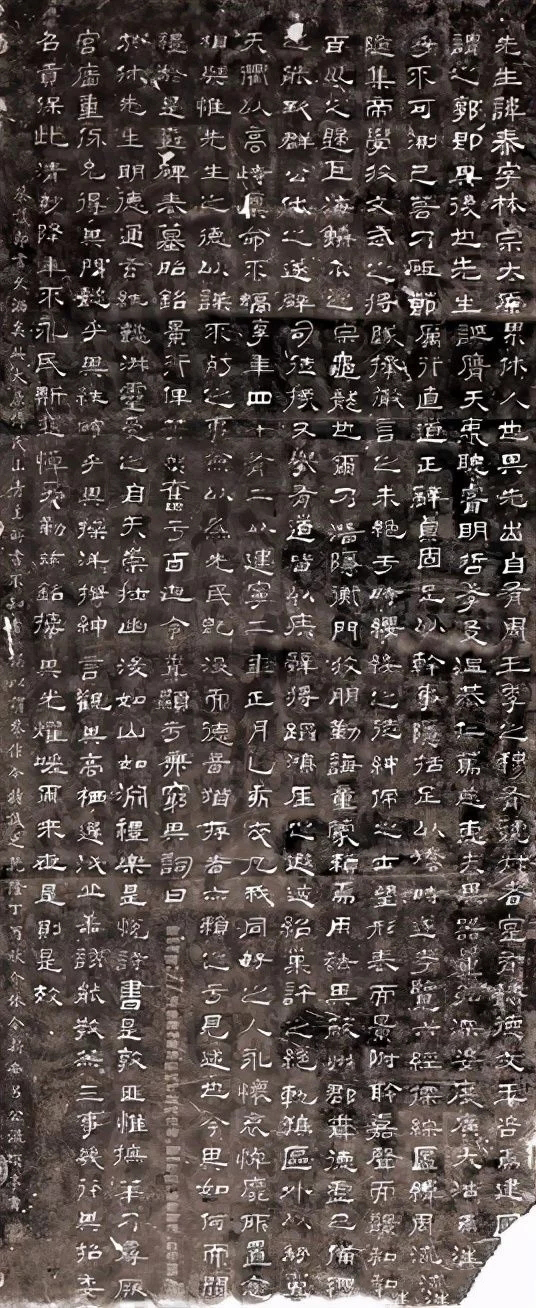 先生諱泰字林宗太原界休人也其先出自有周王季之穆有虢叔者寔有懿德文王咨焉建國
謂之郭即其後也先生誕膺天衷聰睿明哲孝友溫恭仁篤慈惠夫其器量弘深姿度廣大浩焉汪
不可測已若乃砥節厲行直道正辭貞固足以幹事隱括足以矯時遂考覽六經探綜圖緯周流
隨集帝學收文武之將墜拯微言之未絕于時纓緌之徒紳佩之士望形表而景附聆嘉聲而響和
百川之歸巨海鱗介之宗龜龍也爾乃潛隱衡門收朋勤誨童蒙賴焉用祛其蔽州郡聞德虛己備禮
之能致群公休之遂辟司徒掾又舉有道皆以疾辭將蹈鴻涯之遐迹紹巢許之絕軌翔區外以舒翼
天衢以高峙稟命不融享年四十有二以建寧二年正月乙亥卒凡我同好之人永懷哀悼靡所置念
相與惟先生之德以謀不朽之事僉以為先民既沒而德音猶存者亦賴之于見述也今其如何而闕
禮於是樹碑表墓昭銘景行俾芳烈奮乎百世令聞顯乎無窮其詞曰
於休先生明德通玄純懿淑靈受之自天崇壯幽浚如山如淵禮樂是悅詩書是敦匪惟摭華乃尋厥
宮牆重仞允得其門懿乎其純確乎其操洋洋搢紳言觀其高棲遲泌丘善誘能教赫三事幾行其招委
名貢保此清妙降年不永民斯悲悼爰勒茲銘摛其光耀嗟爾來世是則是效